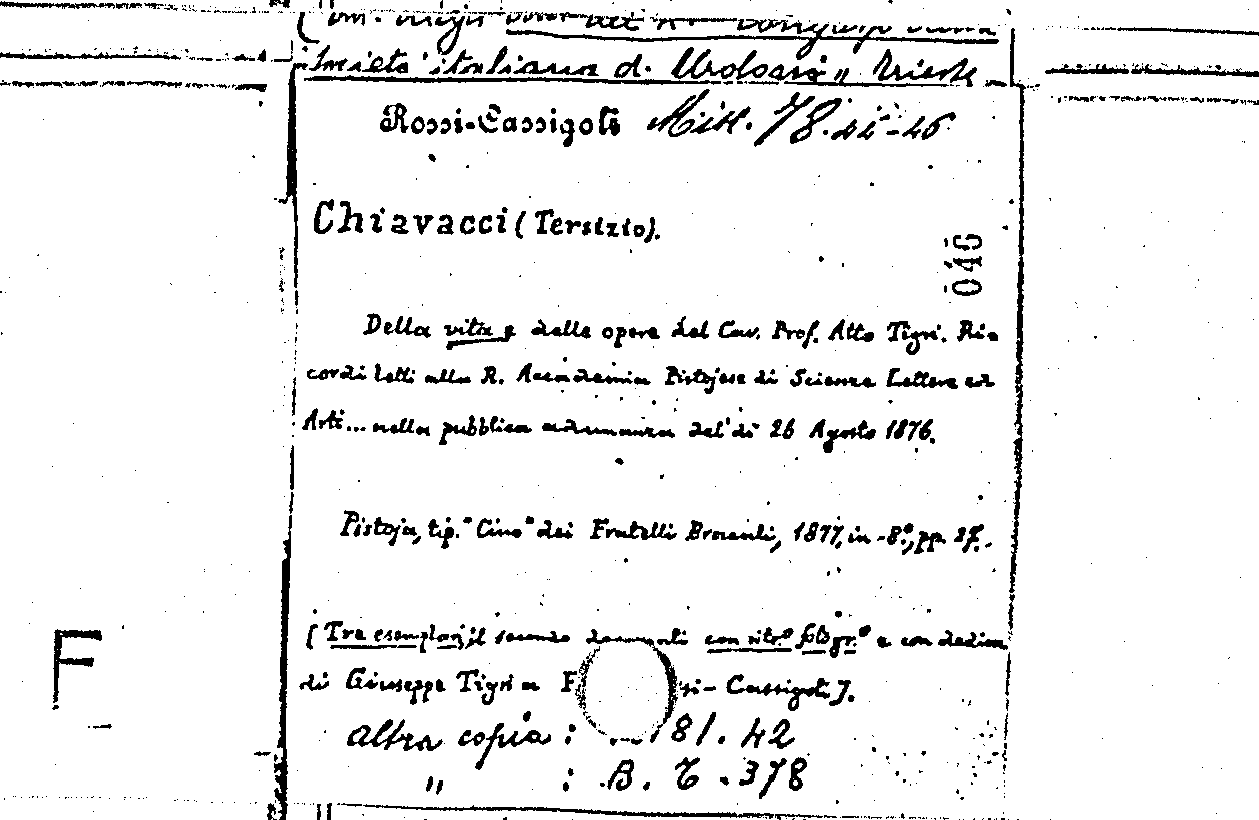 italiana d. Trieste
Rossi-Cassigoli Misc. 78.
Chiavacci (Tersizio).
046
Della vita e delle opere del Cav. Prof. Atto Tigri. Ri-
cordi letti alla R. Accademia Pistojese di Scienze Lettere ed
Arti... nella pubblica adunanza del dì 26 Agosto 1876.
Pistoja, tip. "Cino" dei Fratelli Bracali, 1877, in-8°, pp. 27.
[Tre esemplari, il secondo con ritr.° fotogr.° e con dedica
di Giuseppe Tigri a F si-Cassigoli].
F
altra copia : 81. 42
" : B. 378